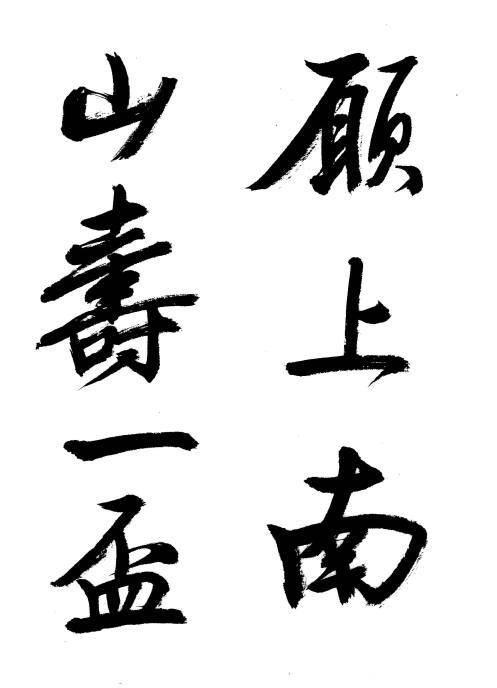 願上南
山壽一盃